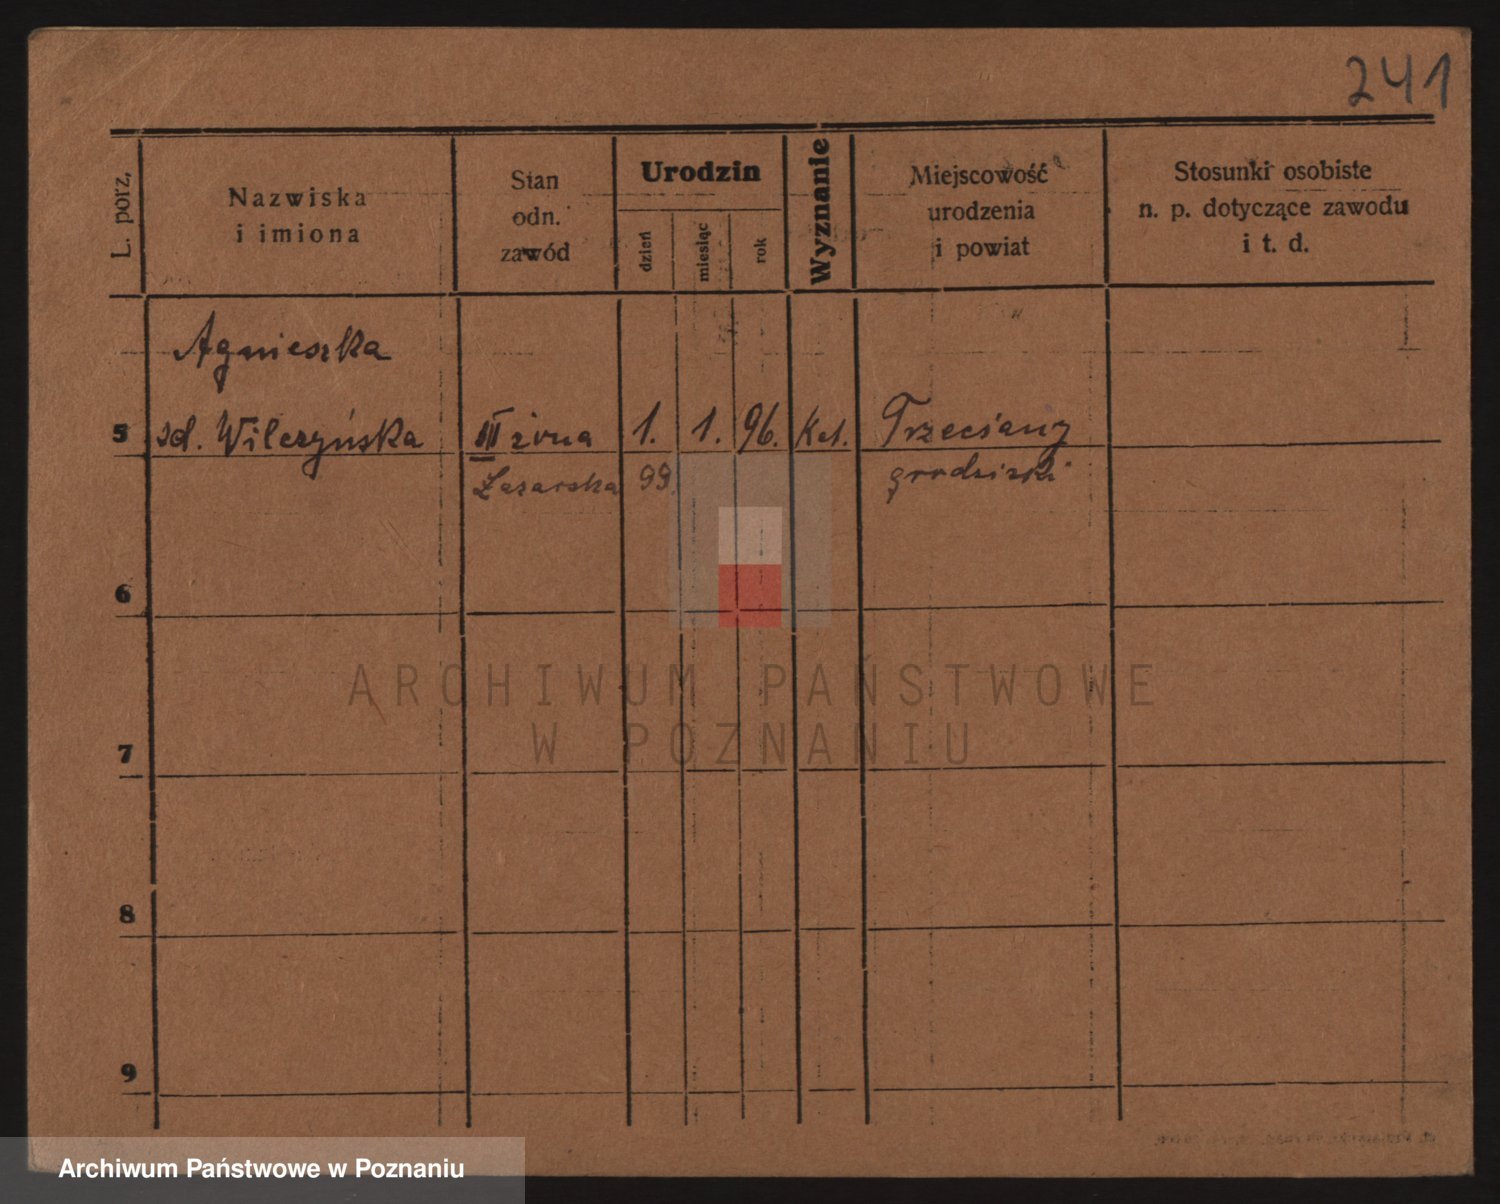 241
L. porz,
Nazwiska
i imiona
Stan
odn.
zawód
Urodzin
dzień
miesiąc
rok
Wyznanie
Miejscowość
urodzenia
i powiat
Stosunki osobiste
n. p. dotyczące zawodu
i t. d.
Agnieszka
5 zd. Wilczyńska III żona 1. 1. 96. Kat. Trzeciany
Łazarska 99. grodziski
6
7
8
9
ARCHIWUM PAŃSTWOWE
W POZNANIU
Archiwum Państwowe w Poznaniu